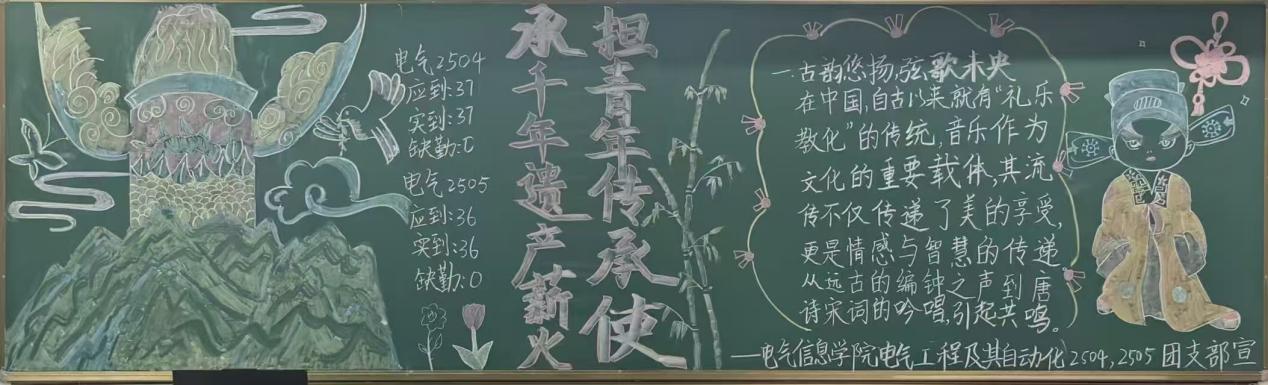 电气2504
应到:37
实到:37
缺勤:0
电气2505
应到:36
实到:36
缺勤:0
担青年传承使
承千年遗产薪火
一.古韵悠扬,弦歌未央
在中国,自古以来就有“礼乐
教化”的传统,音乐作为
文化的重要载体,其流
传不仅传递了美的享受,
更是情感与智慧的传递
从远古的编钟之声到唐
诗宋词的吟唱,引起共鸣。
——电气信息学院电气工程及其自动化2504,2505团支部宣